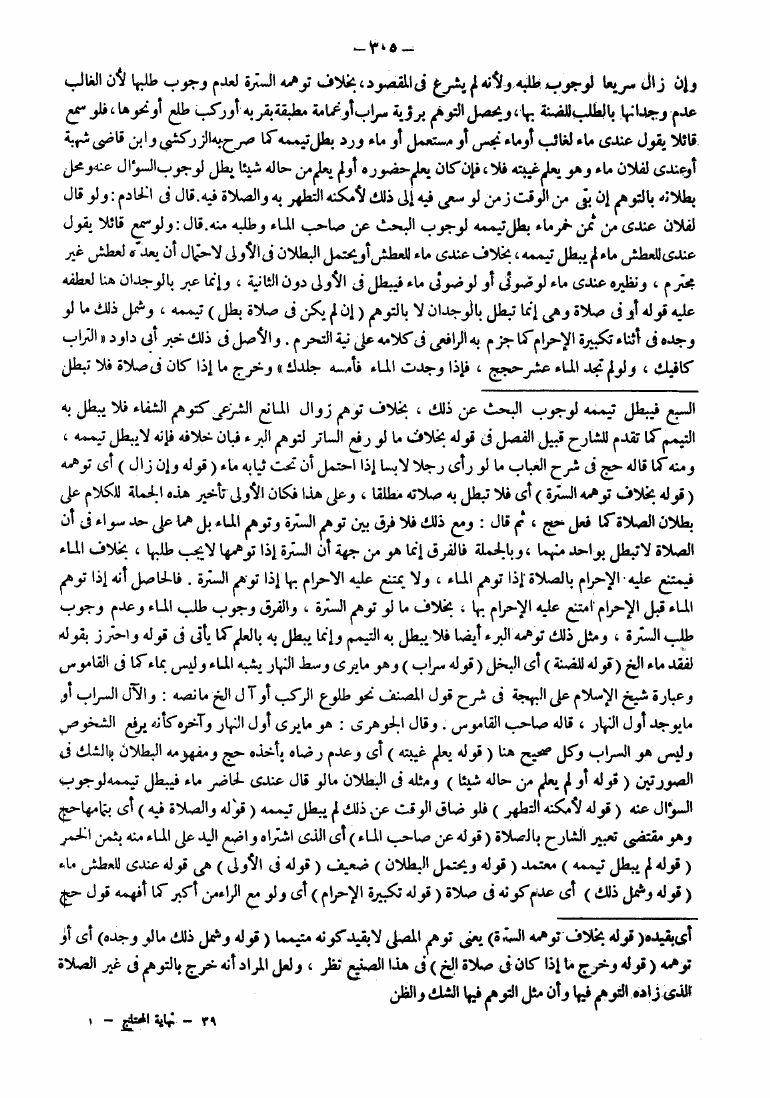 — ٣٠٥ —
وإن زال سريعا لوجوب طلبه ولأنه لم يشرع فى المقصود، بخلاف توهمه السترة لعدم وجوب طلبها لأن الغالب
عدم وجدانها بالطلب للضنة بها، ويحصل التوهم برؤية سراب أو غمامة مطبقة بقربه أو ركب طلع أو نحوها، فلو سمع
قائلا يقول عندى ماء لغائب أو ماء نجس أو مستعمل أو ماء ورد بطل تيممه كما صرح به الزركشى وابن قاضى شهبة
أو عندى لفلان ماء وهو يعلم غيبته فلا، فإن كان يعلم حضوره أو لم يعلم من حاله شيئا بطل لوجوب السؤال عنه ومحل
بطلانه بالتوهم إن بقى من الوقت زمن لو سعى فيه إلى ذلك لأمكنه التطهر به والصلاة فيه. قال فى الخادم : ولو قال
لفلان عندى من ثمن خمر ماء بطل تيممه لوجوب البحث عن صاحب الماء وطلبه منه. قال : ولو سمع قائلا يقول
عندى للعطش ماء لم يبطل تيممه، بخلاف عندى ماء للعطش أو يحتمل البطلان فى الأولى لاحتمال أن يعده لعطش غير
محترم ، ونظيره عندى ماء لوضوئى أو لوضوئى ماء فيبطل فى الأولى دون الثانية ، وإنما عبر بالوجدان هنا لعطفه
عليه قوله أو فى صلاة وهى إنما تبطل بالوجدان لا بالتوهم ( إن لم يكن فى صلاة بطل ) تيممه ، وشمل ذلك ما لو
وجده فى أثناء تكبيرة الإحرام كما جزم به الرافعى فى كلامه على نية التحرم . والأصل فى ذلك خبر أبى داود « التراب
كافيك ، ولو لم تجد الماء عشر حجج ، فإذا وجدت الماء فأمسه جلدك » وخرج ما إذا كان فى صلاة فلا تبطل
السبع فيبطل تيممه لوجوب البحث عن ذلك ، بخلاف توهم زوال المانع الشرعى كتوهم الشفاء فلا يبطل به
التيمم كما تقدم للشارح قبيل الفصل فى قوله بخلاف ما لو رفع الساتر لتوهم البرء فبان خلافه فإنه لا يبطل تيممه ،
ومنه كما قاله حج فى شرح العباب ما لو رأى رجلا لابسا إذا احتمل أن تحت ثيابه ماء ( قوله وإن زال ) أى توهمه
( قوله بخلاف توهمه السترة ) أى فلا تبطل به صلاته مطلقا ، وعلى هذا فكان الأولى تأخير هذه الجملة للكلام على
بطلان الصلاة كما فعل حج ، ثم قال : ومع ذلك فلا فرق بين توهم السترة وتوهم الماء بل هما على حد سواء فى أن
الصلاة لا تبطل بواحد منهما ، وبالجملة فالفرق إنما هو من جهة أن السترة إذا توهمها لا يجب طلبها ، بخلاف الماء
فيمتنع عليه الإحرام بالصلاة إذا توهم الماء ، ولا يمتنع عليه الاحرام بها إذا توهم السترة . فالحاصل أنه إذا توهم
الماء قبل الإحرام امتنع عليه الإحرام بها ، بخلاف ما لو توهم السترة ، والفرق وجوب طلب الماء وعدم وجوب
طلب السترة ، ومثل ذلك توهمه البرء أيضا فلا يبطل به التيمم وإنما يبطل به بالعلم كما يأتى فى قوله واحترز بقوله
لفقد ماء الخ ( قوله للضنة ) أى البخل ( قوله سراب ) وهو مايرى وسط النهار يشبه الماء وليس بماء كما فى القاموس
وعبارة شيخ الإسلام على البهجة فى شرح قول المصنف نحو طلوع الركب أو آل الخ مانصه : والآل السراب أو
مايوجد أول النهار ، قاله صاحب القاموس . وقال الجوهرى : هو مايرى أول النهار وآخره كأنه يرفع الشخوص
وليس هو السراب وكل صحيح هنا ( قوله يعلم غيبته ) أى وعدم رضاه بأخذه حج ومفهومه البطلان بالشك فى
الصورتين ( قوله أو لم يعلم من حاله شيئا ) ومثله فى البطلان مالو قال عندى لحاضر ماء فيبطل تيممه لوجوب
السؤال عنه ( قوله لأمكنه التطهر ) فلو ضاق الوقت عن ذلك لم يبطل تيممه ( قوله والصلاة فيه ) أى بتمامها حج
وهو مقتضى تعبير الشارح بالصلاة ( قوله عن صاحب الماء ) أى الذى اشتراه واضع اليد على الماء منه بثمن الخمر
( قوله لم يبطل تيممه ) معتمد ( قوله ويحتمل البطلان ) ضعيف ( قوله فى الأولى ) هى قوله عندى للعطش ماء
( قوله وشمل ذلك ) أى عدم كونه فى صلاة ( قوله تكبيرة الإحرام ) أى ولو مع الراء من أكبر كما أفهمه قول حج
أى بقيده ( قوله بخلاف توهمه السترة ) يعنى توهم المصلى لا بقيد كونه متيمما ( قوله وشمل ذلك مالو وجده ) أى أو
توهمه ( قوله وخرج ما إذا كان فى صلاة الخ ) فى هذا الصنيع نظر ، ولعل المراد أنه خرج بالتوهم فى غير الصلاة
الذى زاده التوهم فيها وأن مثل التوهم فيها الشك والظن
٣٩ - نهاية المحتاج - ١